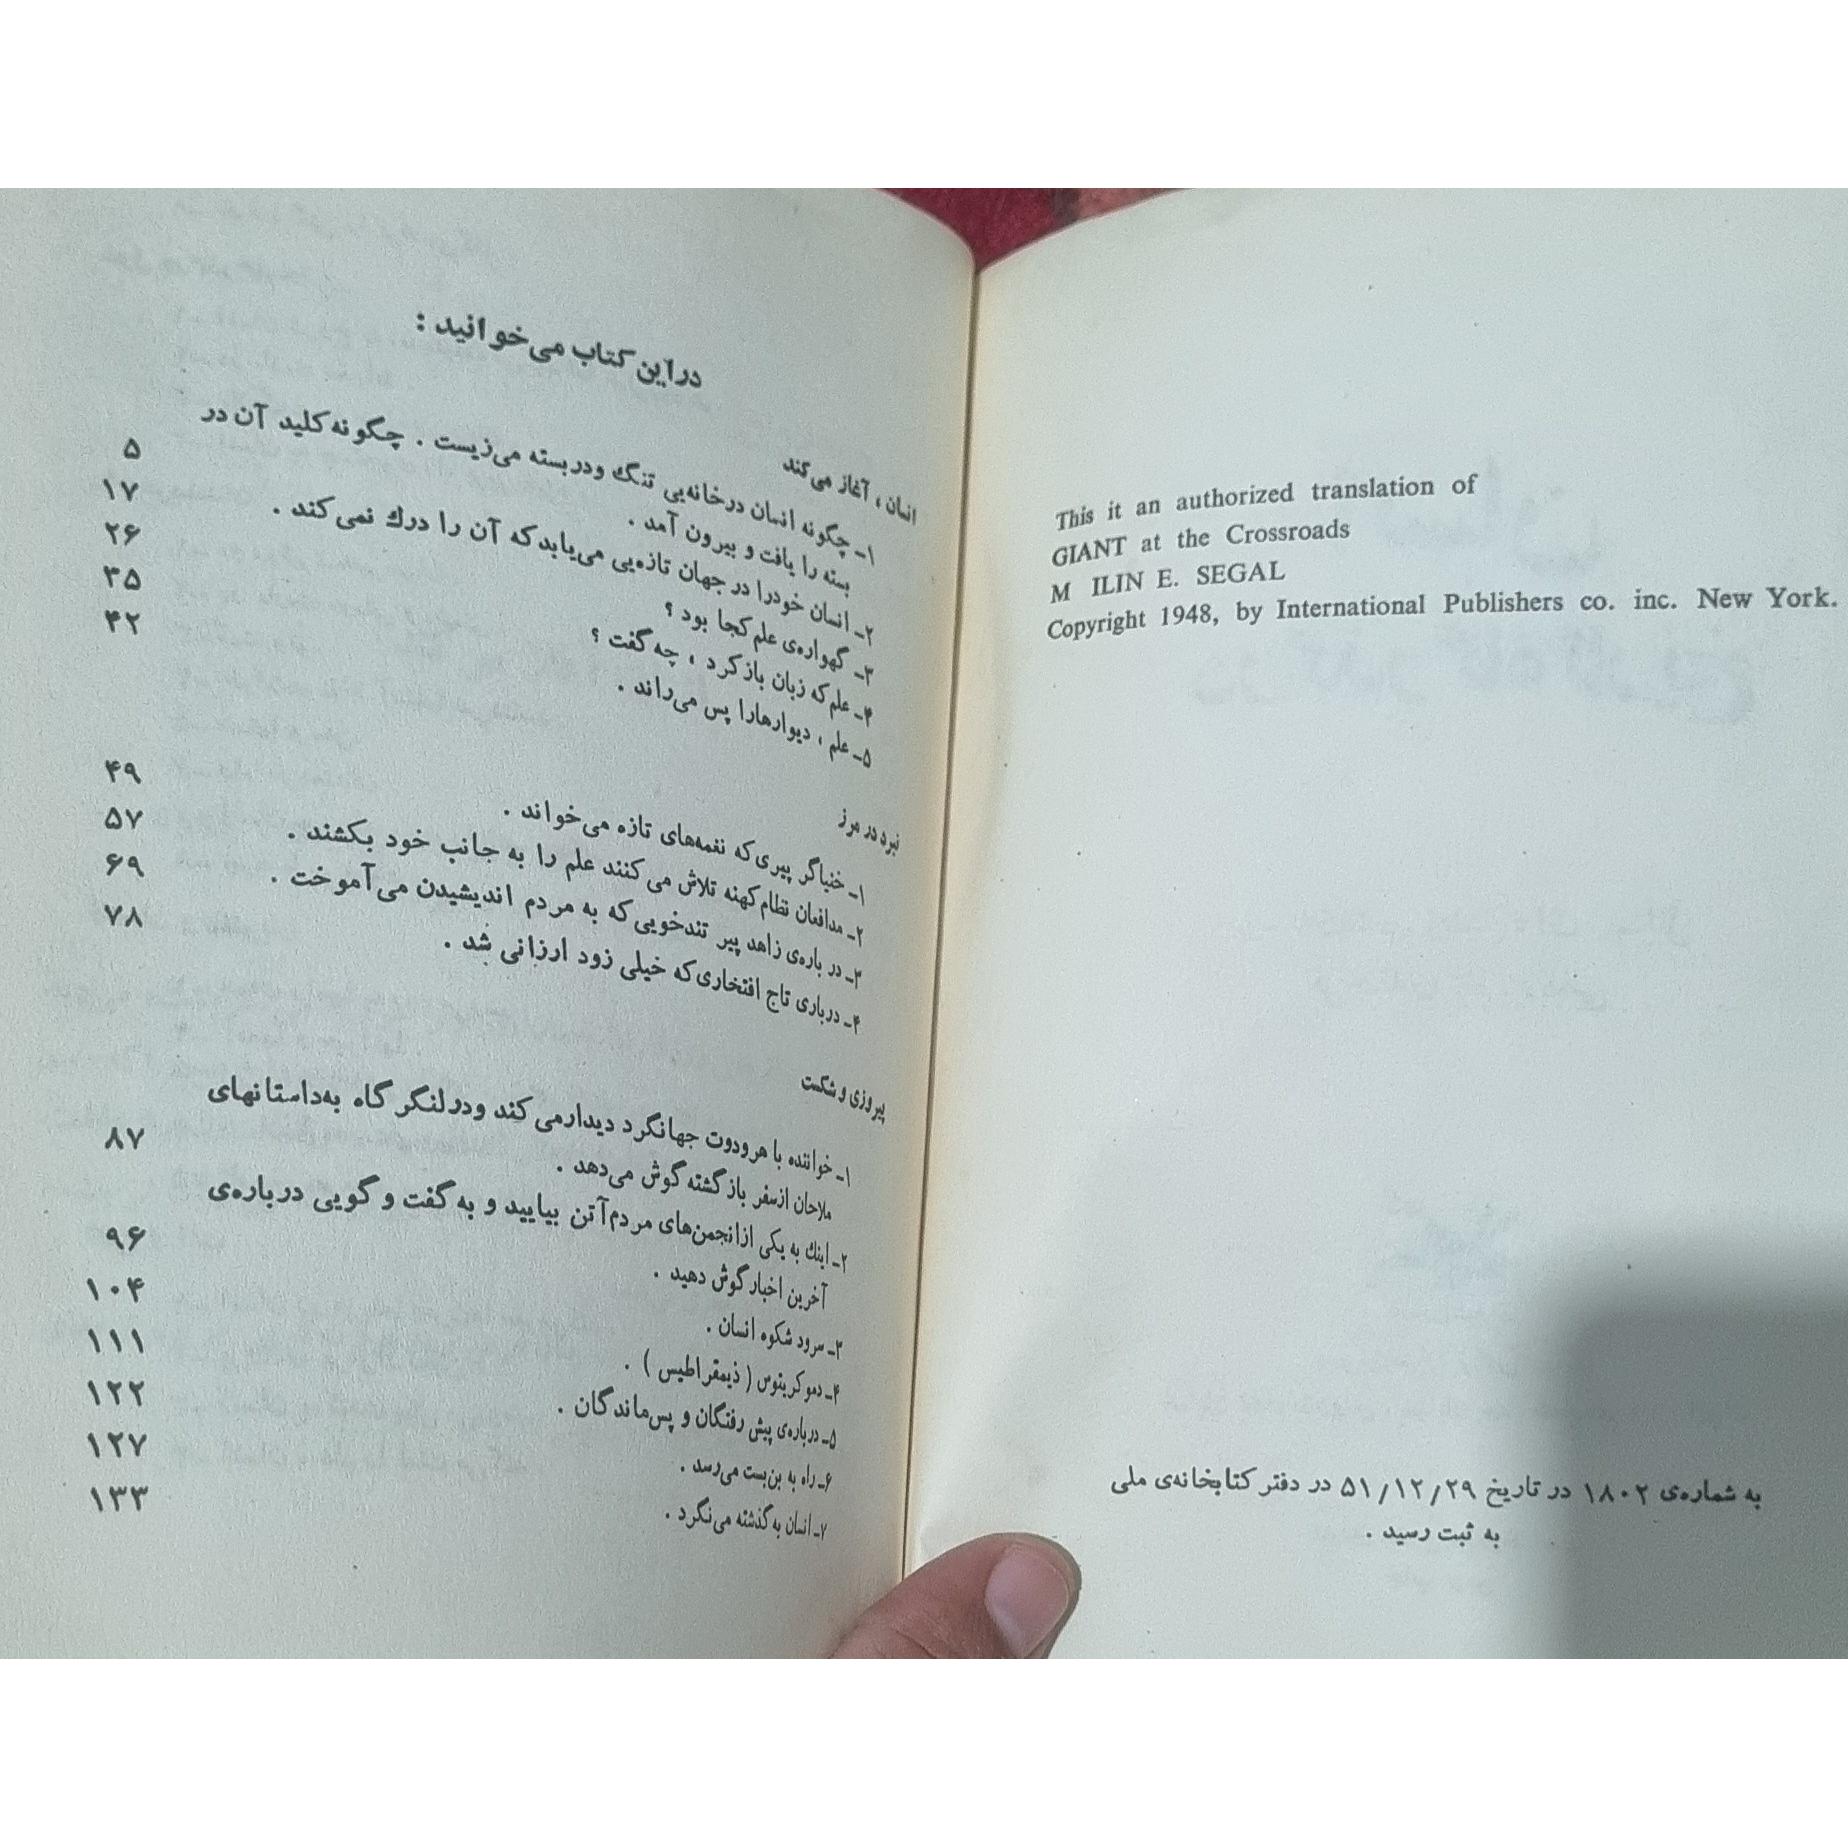 This it an authorized translation of
GIANT at the Crossroads
M ILIN E. SEGAL
Copyright 1948, by International Publishers co. inc. New York.
به شماره‌ی ۱۸۰۲ در تاریخ ۵۱/۱۲/۲۹ در دفتر کتابخانه‌ی ملی
به ثبت رسید .
در این کتاب می‌خوانید :
انسان ، آغاز می‌کند
۱ـ چگونه انسان درخانه‌یی تنگ ودربسته می‌زیست . چگونه کلید آن در
بسته را یافت و بیرون آمد . ۵
۲ـ انسان خودرا در جهان تازه‌یی می‌یابد که آن را درك نمی‌کند . ۱۷
۳ـ گهواره‌ی علم کجا بود ؟ ۲۶
۴ـ علم که زبان باز کرد ، چه گفت ؟ ۳۵
۵ـ علم ، دیوارهارا پس می‌راند . ۴۲
نبرد در مرز
۱ـ خنیاگر پیری که نغمه‌های تازه می‌خواند . ۴۹
۲ـ مدافعان نظام کهنه تلاش می کنند علم را به جانب خود بکشند . ۵۷
۳ـ در باره‌ی زاهد پیر تندخویی که به مردم اندیشیدن می‌آموخت . ۶۹
۴ـ درباری تاج افتخاری که خیلی زود ارزانی شد . ۷۸
پیروزی و شکست
۱ـ خواننده با هرودوت جهانگرد دیدارمی کند ودرلنگر گاه به‌داستانهای
ملاحان ازسفر باز گشته گوش می‌دهد . ۸۷
۲ـ اینك به یکی ازانجمن‌های مردم‌آتن بیایید و به گفت و گویی درباره‌ی
آخرین اخبار گوش دهید . ۹۶
۳ـ سرود شکوه انسان . ۱۰۴
۴ـ دموکریتوس ( ذیمقراطیس ) . ۱۱۱
۵ـ درباره‌ی پیش رفتگان و پس‌ماندگان . ۱۲۲
۶ـ راه به بن‌بست می‌رسد . ۱۲۷
۷ـ انسان به گذشته می‌نگرد . ۱۳۳